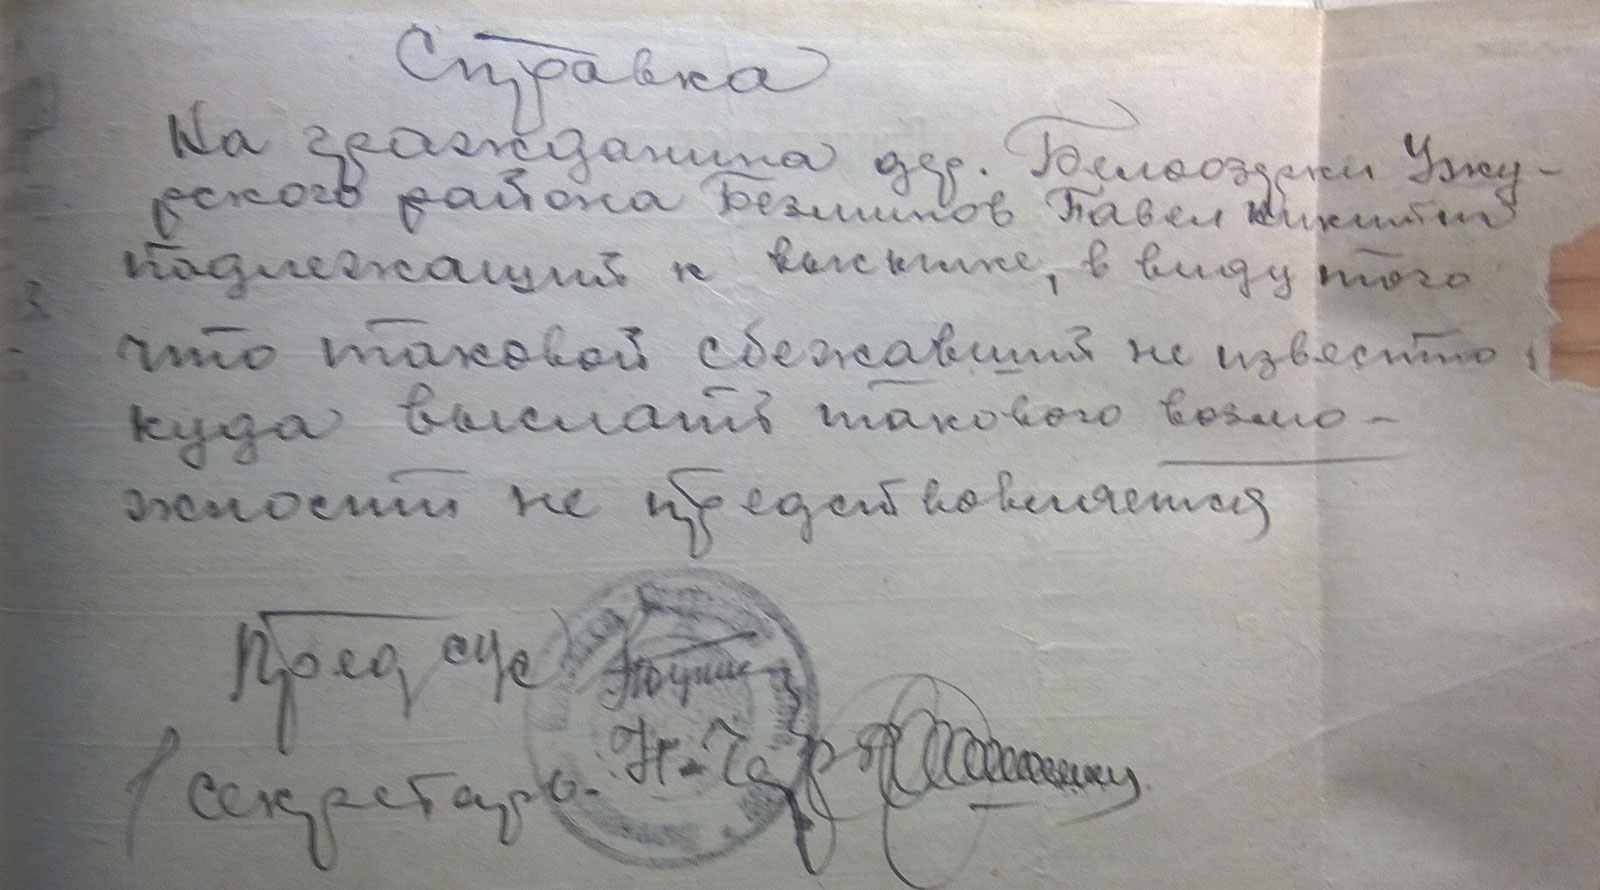 Справка
На гражданина дер. Белоозерки Ужу-
рского района Безлинов Павел Никитич
подлежащий к высылке, в виду того
что таковой сбежавший не известно,
куда выслать такового возмо-
жности не предствовляется
Пред с/с
Секретарь